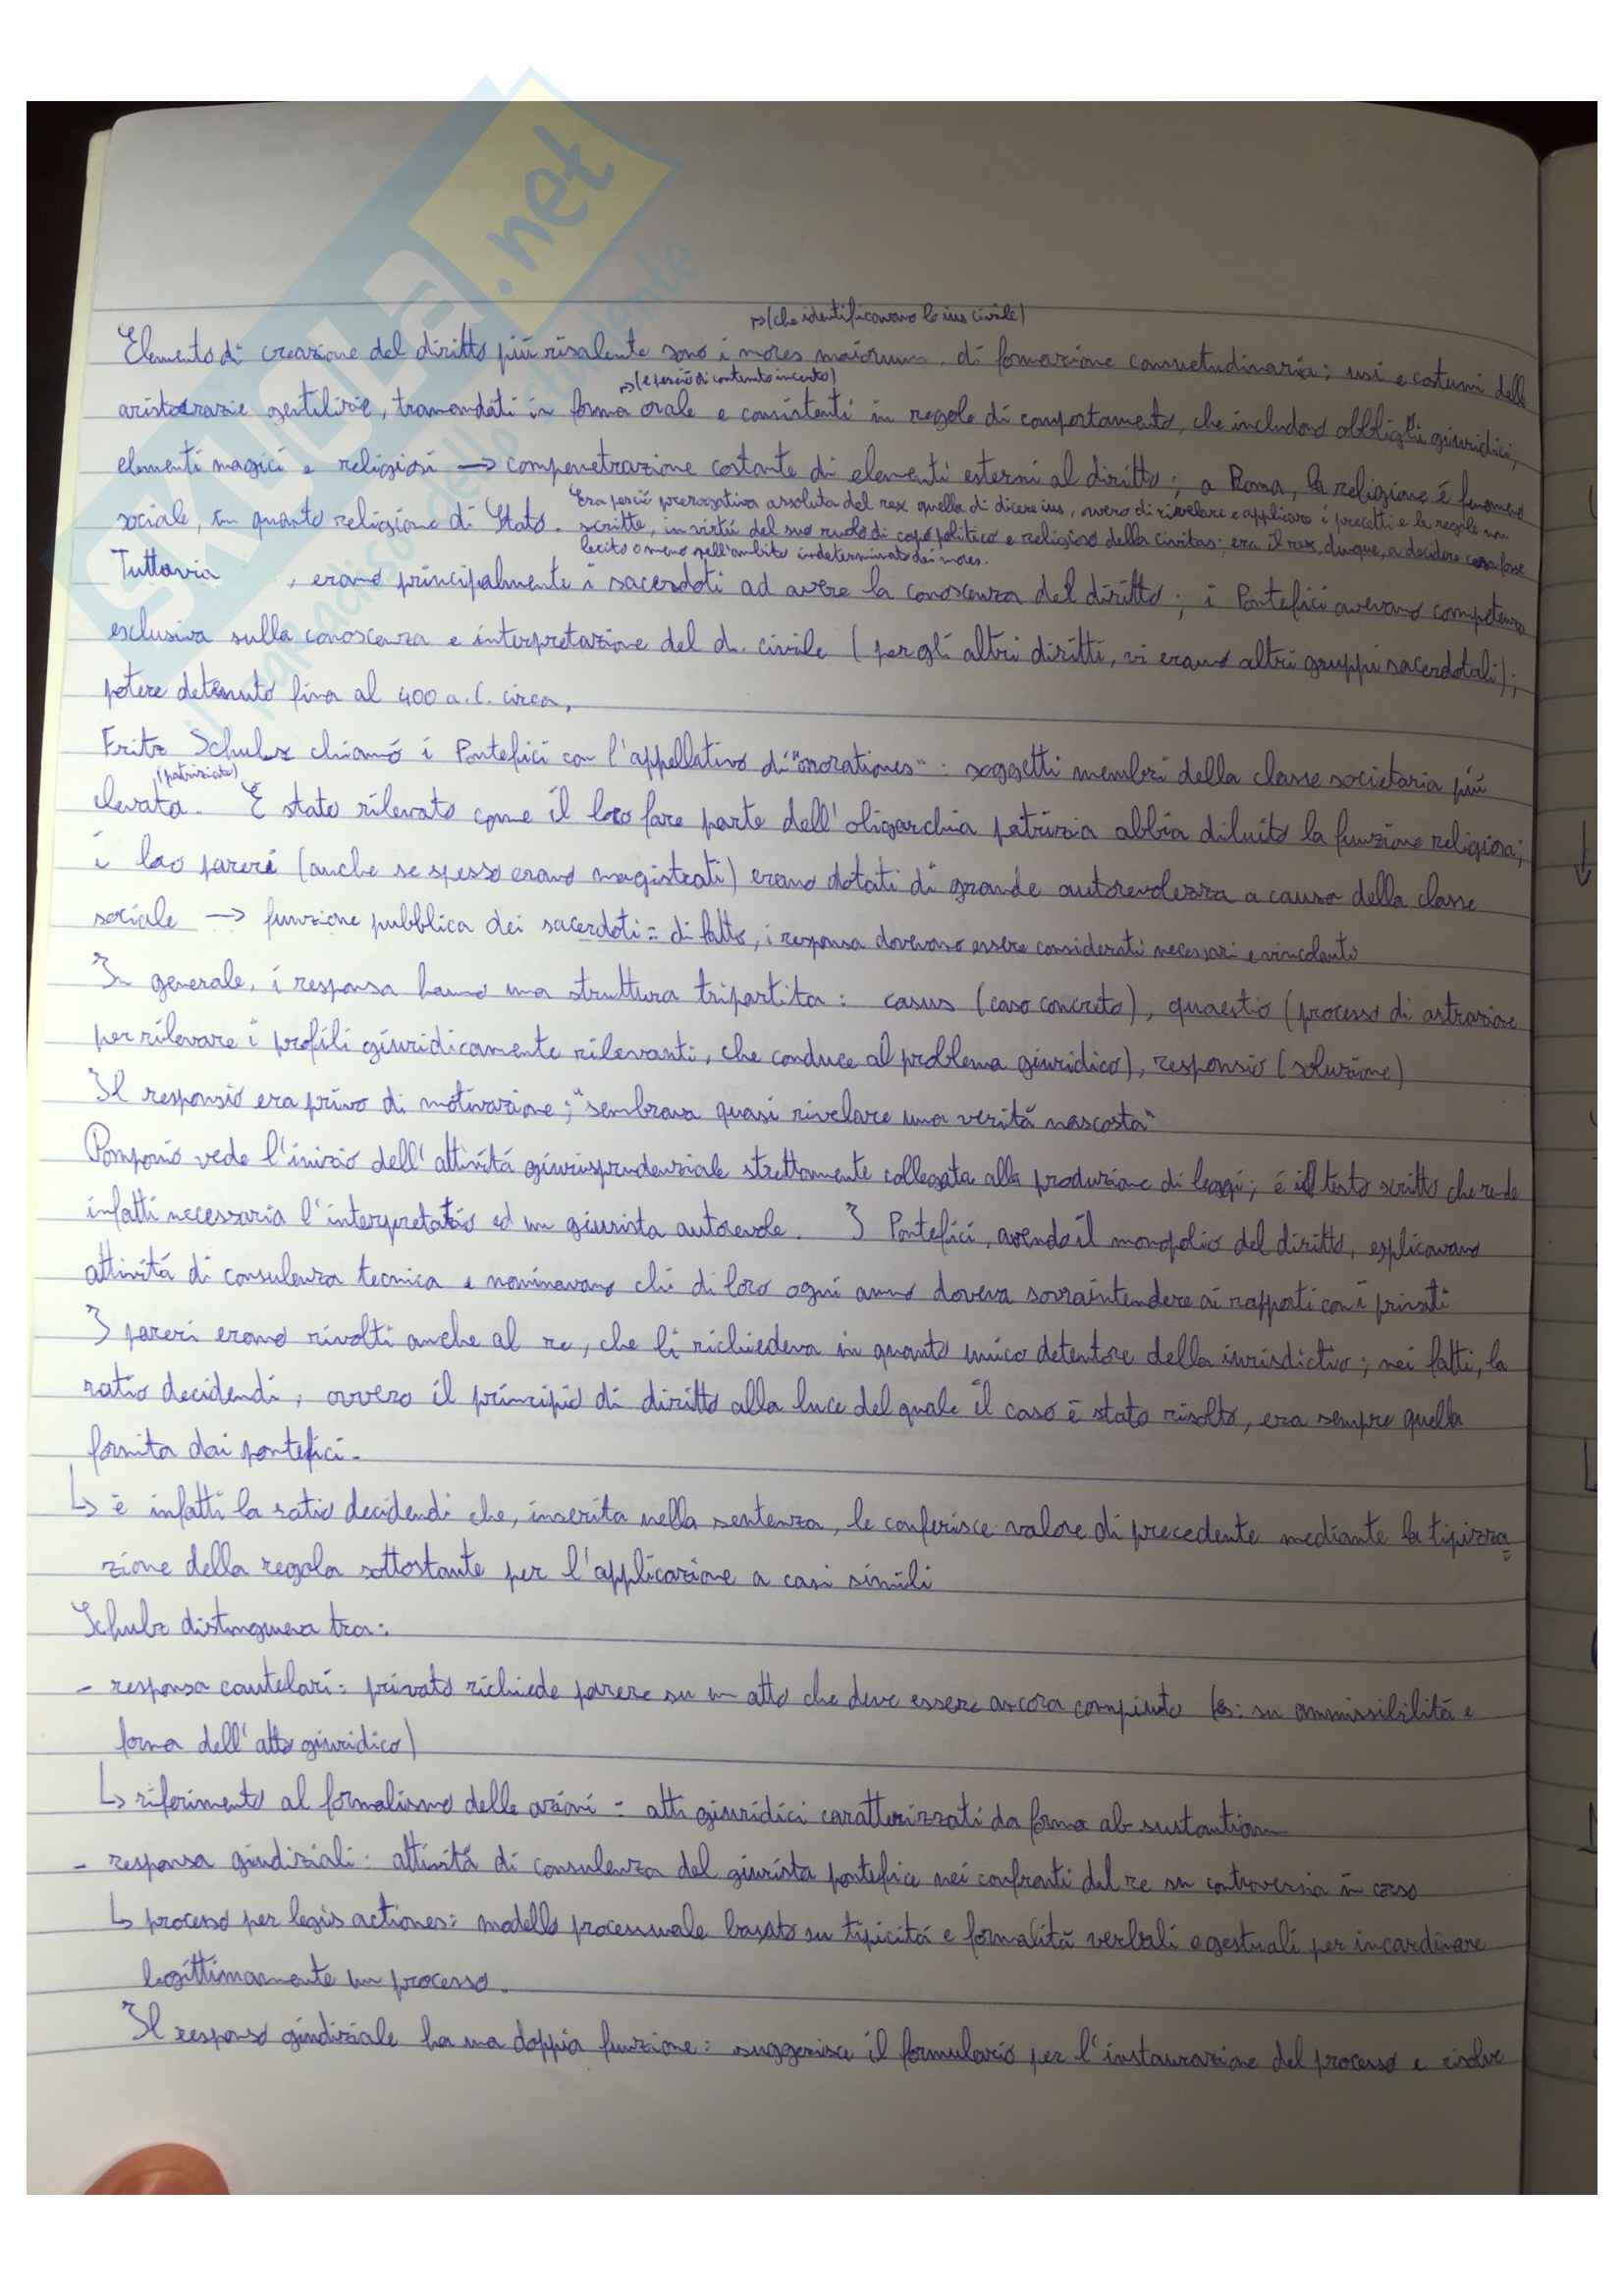 SKUOLA.net
il paradiso dello studente
↦(che identificavano lo ius civile)
Elemento di creazione del diritto più risalente sono i mores maiorum, di formazione consuetudinaria; usi e costumi delle
↦(e perciò di contenuto incerto)
aristocrazie gentilizie, tramandati in forma orale e consistenti in regole di comportamento, che includono obblighi giuridici,
elementi magici e religiosi → compenetrazione costante di elementi esterni al diritto; a Roma, la religione è fenomeno
sociale, in quanto religione di Stato. Era perciò prerogativa assoluta del rex quella di dicere ius, ovvero di rivelare e applicare i precetti e le regole non
scritte, in virtù del suo ruolo di capo politico e religioso della civitas: era il rex, dunque, a decidere cosa fosse
lecito o meno nell'ambito indeterminato dei mores.
Tuttavia , erano principalmente i sacerdoti ad avere la conoscenza del diritto; i Pontefici avevano competenza
esclusiva sulla conoscenza e interpretazione del d. civile (per gli altri diritti, vi erano altri gruppi sacerdotali);
potere detenuto fino al 400 a.C. circa,
Fritz Schulz chiamò i Pontefici con l'appellativo di "onorationes": soggetti membri della classe societaria più
(patriziato)
elevata. È stato rilevato come il loro fare parte dell'oligarchia patrizia abbia diluito la funzione religiosa;
i loro pareri (anche se spesso erano magistrati) erano dotati di grande autorevolezza a causa della classe
sociale → funzione pubblica dei sacerdoti: di fatto, i responsa dovevano essere considerati necessari e vincolanti
In generale, i responsa hanno una struttura tripartita: casus (caso concreto), quaestio (processo di astrazione
per rilevare i profili giuridicamente rilevanti, che conduce al problema giuridico), responsio (soluzione)
Il responsio era privo di motivazione; "sembrava quasi rivelare una verità nascosta"
Pomponio vede l'inizio dell'attività giurisprudenziale strettamente collegata alla produzione di leggi; è il testo scritto che rende
infatti necessaria l'interpretatio ed un giurista autorevole. I Pontefici, avendo il monopolio del diritto, esplicavano
attività di consulenza tecnica e nominavano chi di loro ogni anno doveva sovraintendere ai rapporti con i privati
I pareri erano rivolti anche al re, che li richiedeva in quanto unico detentore della iurisdictio; nei fatti, la
ratio decidendi, ovvero il principio di diritto alla luce del quale il caso è stato risolto, era sempre quella
fornita dai pontefici.
↳ è infatti la ratio decidendi che, inserita nella sentenza, le conferisce valore di precedente mediante la tipizza=
zione della regola sottostante per l'applicazione a casi simili
Schulz distingueva tra:
- responsa cautelari: privato richiede parere su un atto che deve essere ancora compiuto (es: su ammissibilità e
forma dell'atto giuridico)
↳ riferimento al formalismo delle azioni = atti giuridici caratterizzati da forma ab sustantiam
- responsa giudiziali: attività di consulenza del giurista pontefice nei confronti del re su controversia in corso
↳ processo per legis actiones: modello processuale basato su tipicità e formalità verbali e gestuali per incardinare
legittimamente un processo.
Il responso giudiziale ha una doppia funzione: suggerisce il formulario per l'instaurazione del processo e risolve